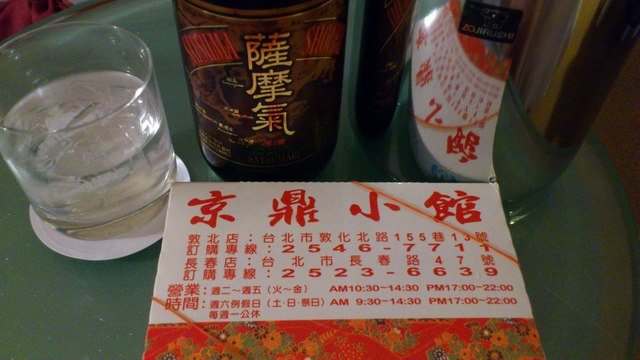 SATSUMA SHOCHU
薩摩氣
SATSUMAGI
ZOJIRUSHI
京鼎小館
敦北店：台北市敦化北路155巷13號
訂購專線：2546-7711
長春店：台北市長春路47號
訂購專線：2523-6639
營業：週二～週五（火～金） AM10:30~14:30 PM17:00~22:00
時間：週六例假日（土‧日‧祭日） AM 9:30~14:30 PM17:00~22:00
每週一公休